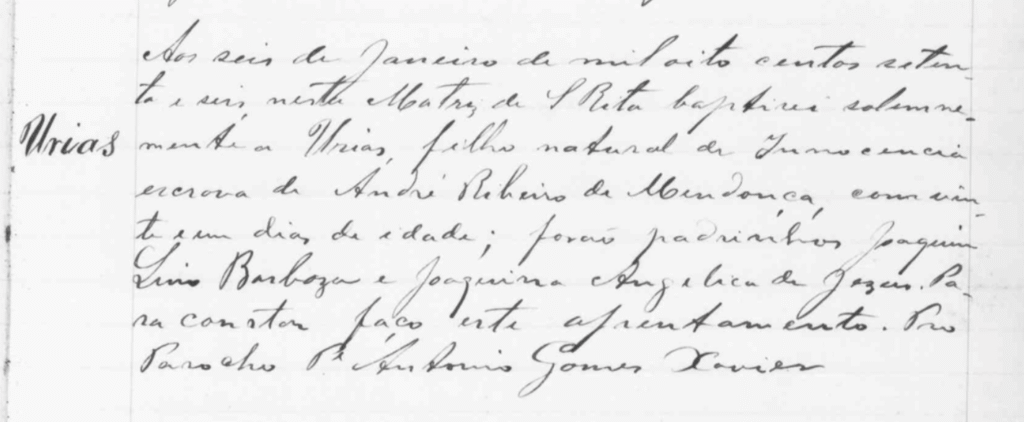 Aos seis de Janeiro de mil oito centos seten-
ta e seis, nesta Matriz de S Rita baptisei solemne-
Urias
mente a Urias, filho natural de Innocencia
escrava de André Ribeiro de Mendonça, com vin-
te e um dias de idade; forão padrinhos Joaquim
Lino Barboza e Joaquina Angelica de Jezus. Pa-
ra constar faço este assentamento. Pro
Parocho Pe Antonio Gomes Xavier